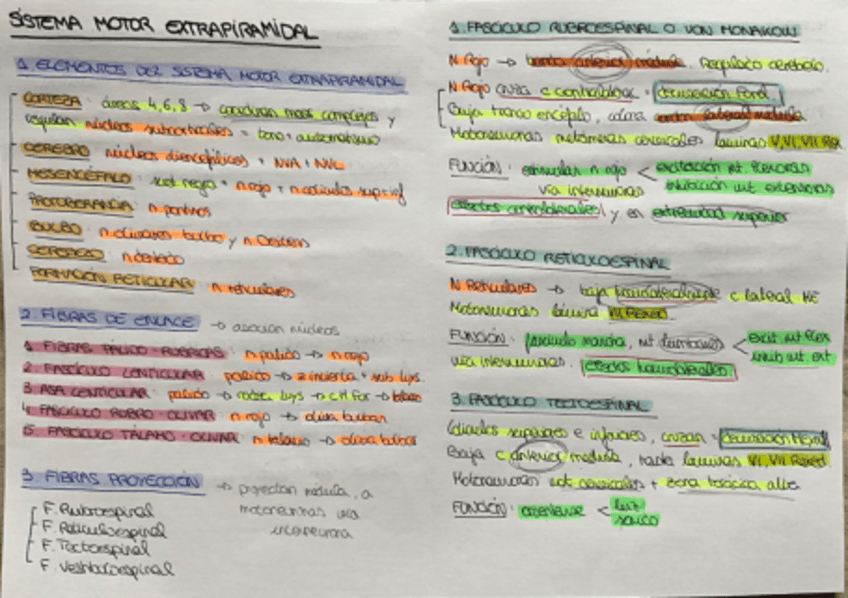 SISTEMA MOTOR EXTRAPIRAMIDAL
1. ELEMENTOS DEL SISTEMA MOTOR EXTRAPIRAMIDAL
CORTEZA: áreas 4,6,8 → coordinan mov complejos y
regulan núcleos subcorticales = tono + automatismo
CEREBRO núcleos diencefálicos + NVA + NVL
MESENCÉFALO: sust negra + n rojo + n colículos sup+inf
PROTUBERANCIA n pontinos
BULBO n olivares bulbo y n Deiters
CEREBELO n dentado
FORMACIÓN RETICULAR n reticulares
2. FIBRAS DE ENLACE → asocian núcleos
1. FIBRAS PÁLIDO-RUBRICAS n pálido → n rojo
2. FASCÍCULO LENTICULAR pálido → z incierta + sub Luys
3 ASA LENTICULAR pálido → Luys → tálamo
4. FASCÍCULO RUBRO-OLIVAR n rojo → oliva bulbar
5. FASCÍCULO TÁLAMO-OLIVAR n tálamo → oliva bulbar
3. FIBRAS PROYECCIÓN → proyectan médula, a
motoneuronas vía
interneurona
F. Rubroespinal
F. Reticuloespinal
F. Tectoespinal
F. Vestibuloespinal
1. FASCÍCULO RUBROESPINAL O VON MONAKOW
N Rojo → anterior médula. Regulado cerebelo.
N Rojo cruza c contralateral = decusación Forel
Baja tronco encéfalo, lateral médula
Motoneuronas metámeras cervicales láminas V, VI, VII Rex
FUNCIÓN: estimulan n rojo < excitación mt flexoras
vía interneuronas inhibición mt extensoras
efectos contralaterales y en extremidad superior
2. FASCÍCULO RETICULOESPINAL
N Reticulares → baja homolateralmente c lateral ME
Motoneuronas lámina VII Rexed
FUNCIÓN: marcha, mt < excit. mt flex
vía interneuronas. efectos homolaterales inhib mt. ext
3. FASCÍCULO TECTOESPINAL
Colículos superiores e inferiores, cruzan = decusación
Baja c anterior médula, hasta láminas VI, VII Rexed
Motoneuronas cervicales + zona torácica alta
FUNCIÓN: orientarse < luz
sonido